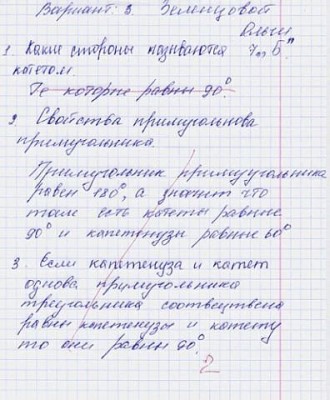 Вариант: В. Зеленцовой
Ольги
7 "Б"
1. Какие стороны называются
котетом.
Те которые равны 90°.
2. Свойства примугольнова
примугольника.
Примугольник примугугольника
равен 180°, а значит что
там есть катеты равные
90° и капетенузы равные 60°
3. Если капетенуза и катет
однова примугольника
треугольника соотвецтвена
равны капетенузы и катету
то они равны 90°
2